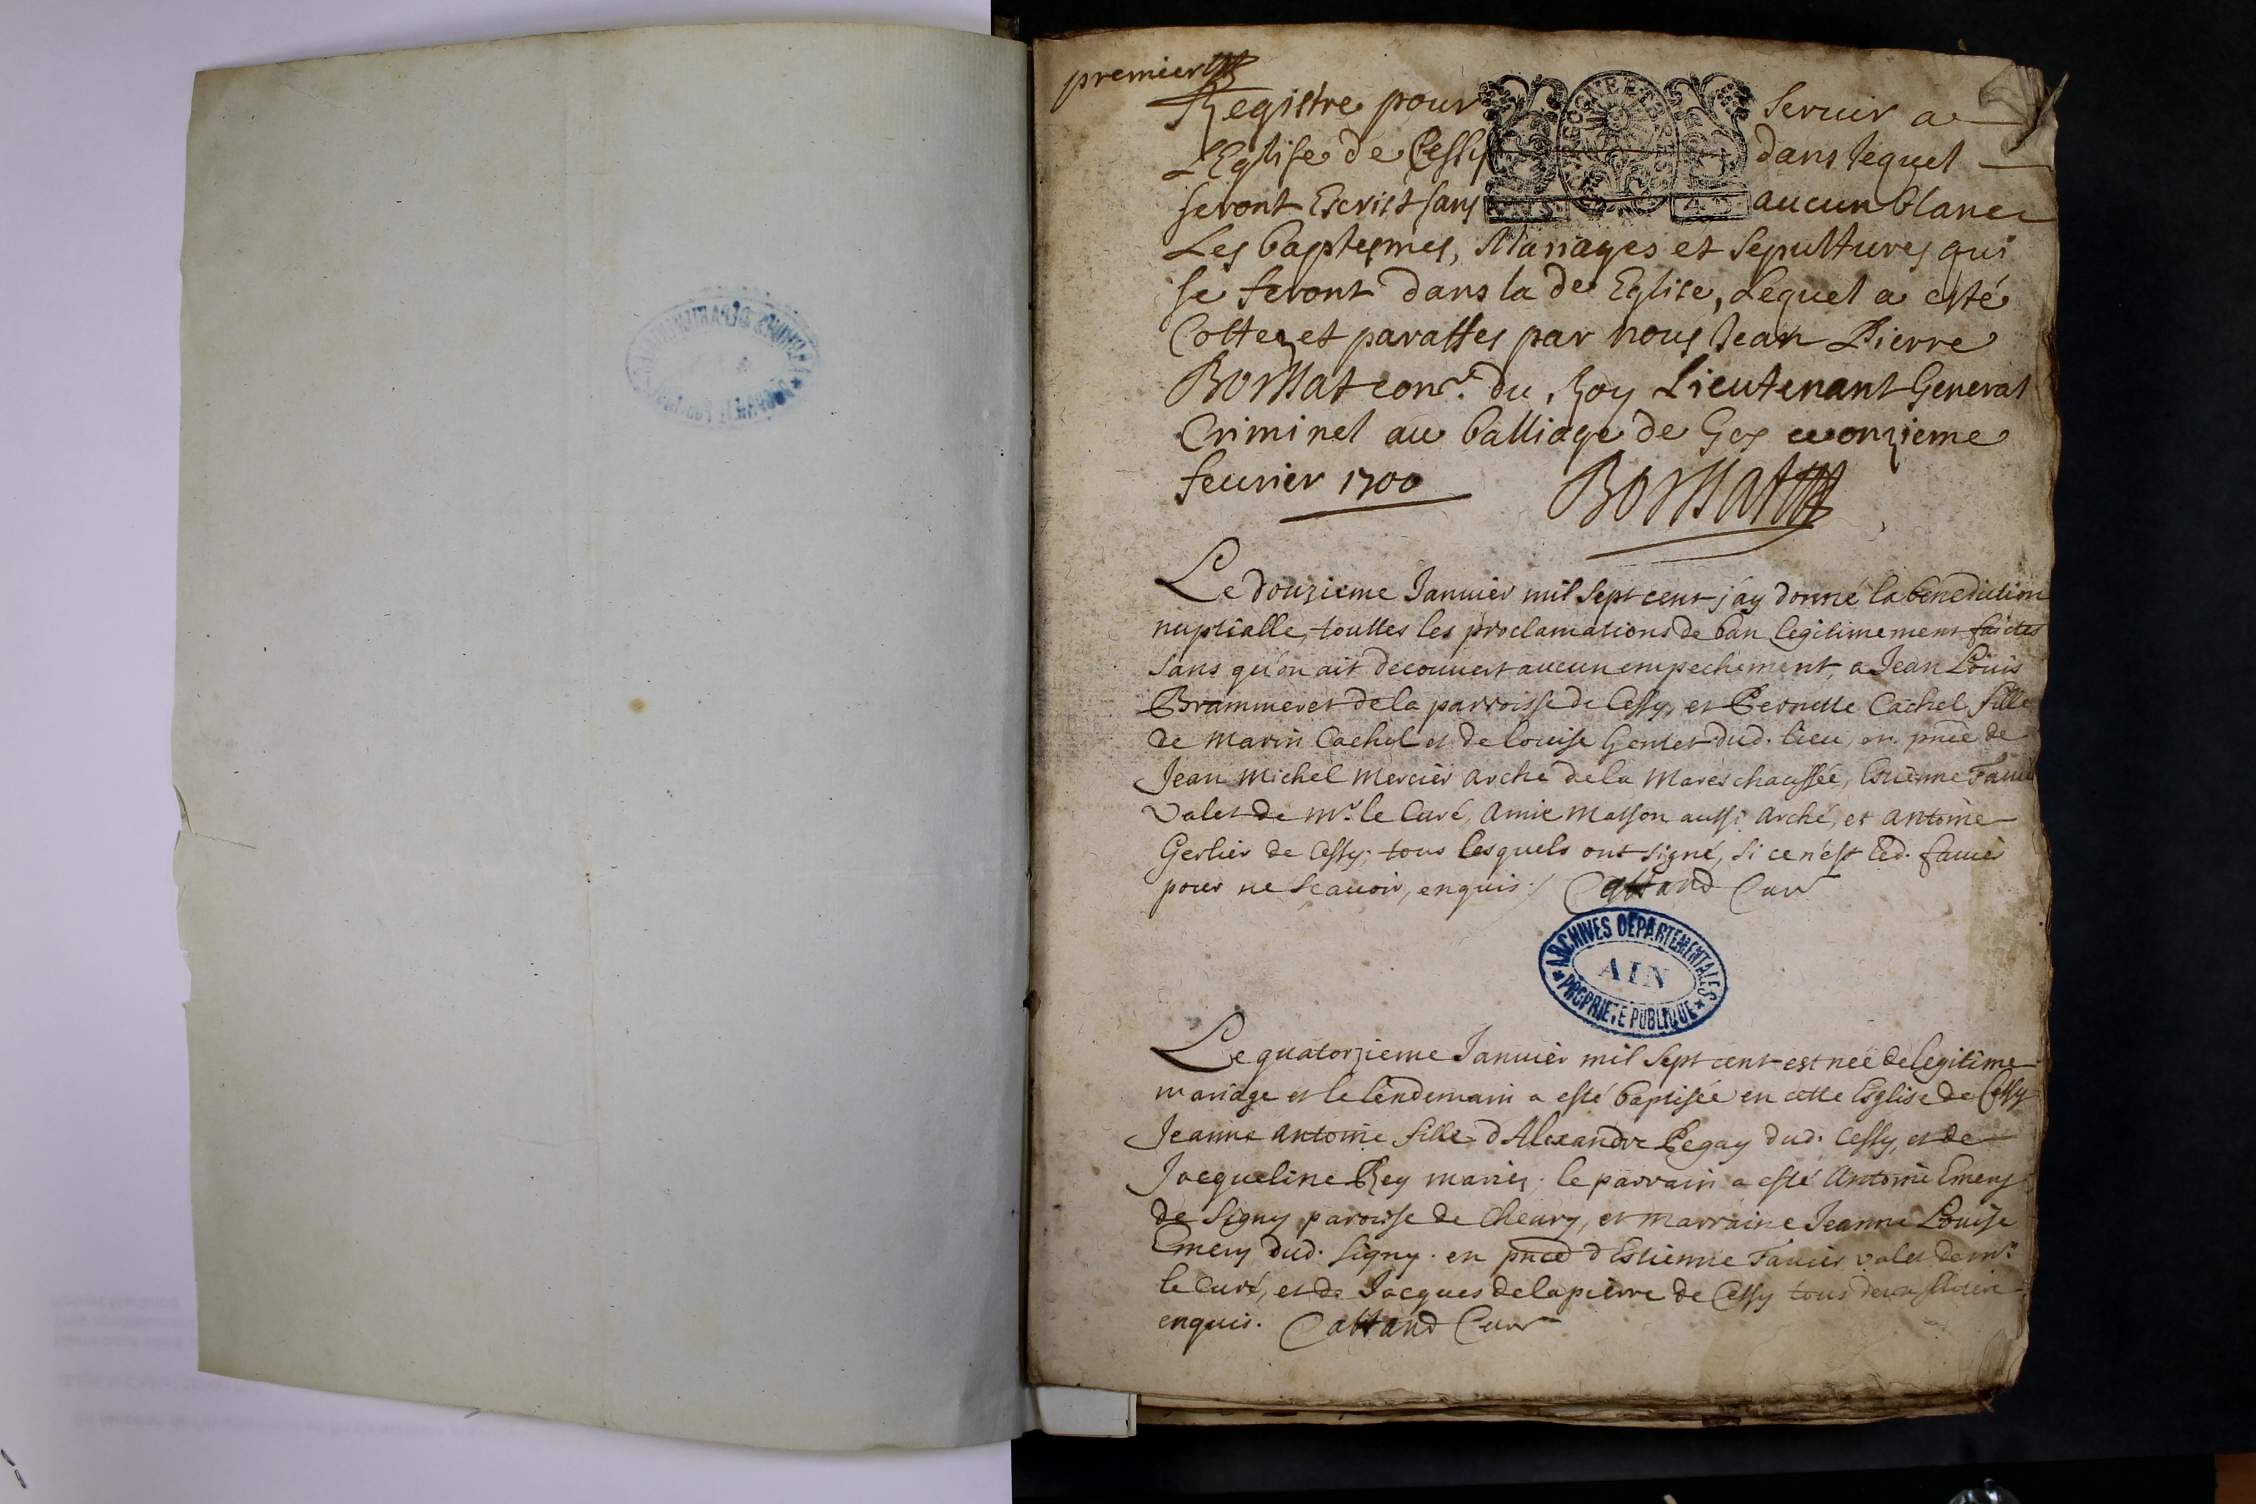 premier
Registre pour Servir a
L'Eglise de Cessy dans lequel
seront Escrict sans aucun blanc
Les baptesmes, Mariages et Sepultures qui
se feront dans la de Eglise, Lequel a esté
Cottez et paraffes par nous Jean Pierre
Borssat conr. du Roy Lieutenant General
Criminel au balliage de Gex ce onzieme
feurier 1700 Borssat
Le douzieme Januier mil sept cent j'ay donné la benediction
nuptialle, touttes les proclamations de ban legitimement faictes
sans qu'on ait decouuert aucun empechement, a Jean Louis
Brammeret de la parroisse de Cessy, et Pernette Cachel fille
de Marin Cachel et de Louise Gentet dud. lieu, en pnce de
Jean Michel Mercier arche de la Mareschaussée, Estienne Fauier
Valet de Mr. le Curé, Amie Masson aussi Arché, et Antoine
Gerlier de Cessy; tous lesquels ont signé, si ce n'est led. fauier
pour ne scauoir, enquis. / Castand Curé
ARCHIVES DÉPARTEMENTALES
AIN
PROPRIÉTÉ PUBLIQUE
Le quatorzieme Januier mil sept cent est neé de legitime
mariage et le lendemain a esté baptisée en cette Esglise de Cessy
Jeanne Antoine fille d'Alexandre Pegay dud. Cessy, et de
Jacqueline Rey mariez; le parrain a esté Antoine Emery
de Signy paroisse de Cheury, et marraine Jeanne Louise
Emery dud. Signy. en pnce d'Estienne Fauier valet de mr.
le Curé, et de Jacques delapierre de Cessy tous deux
enquis. Castand Curé